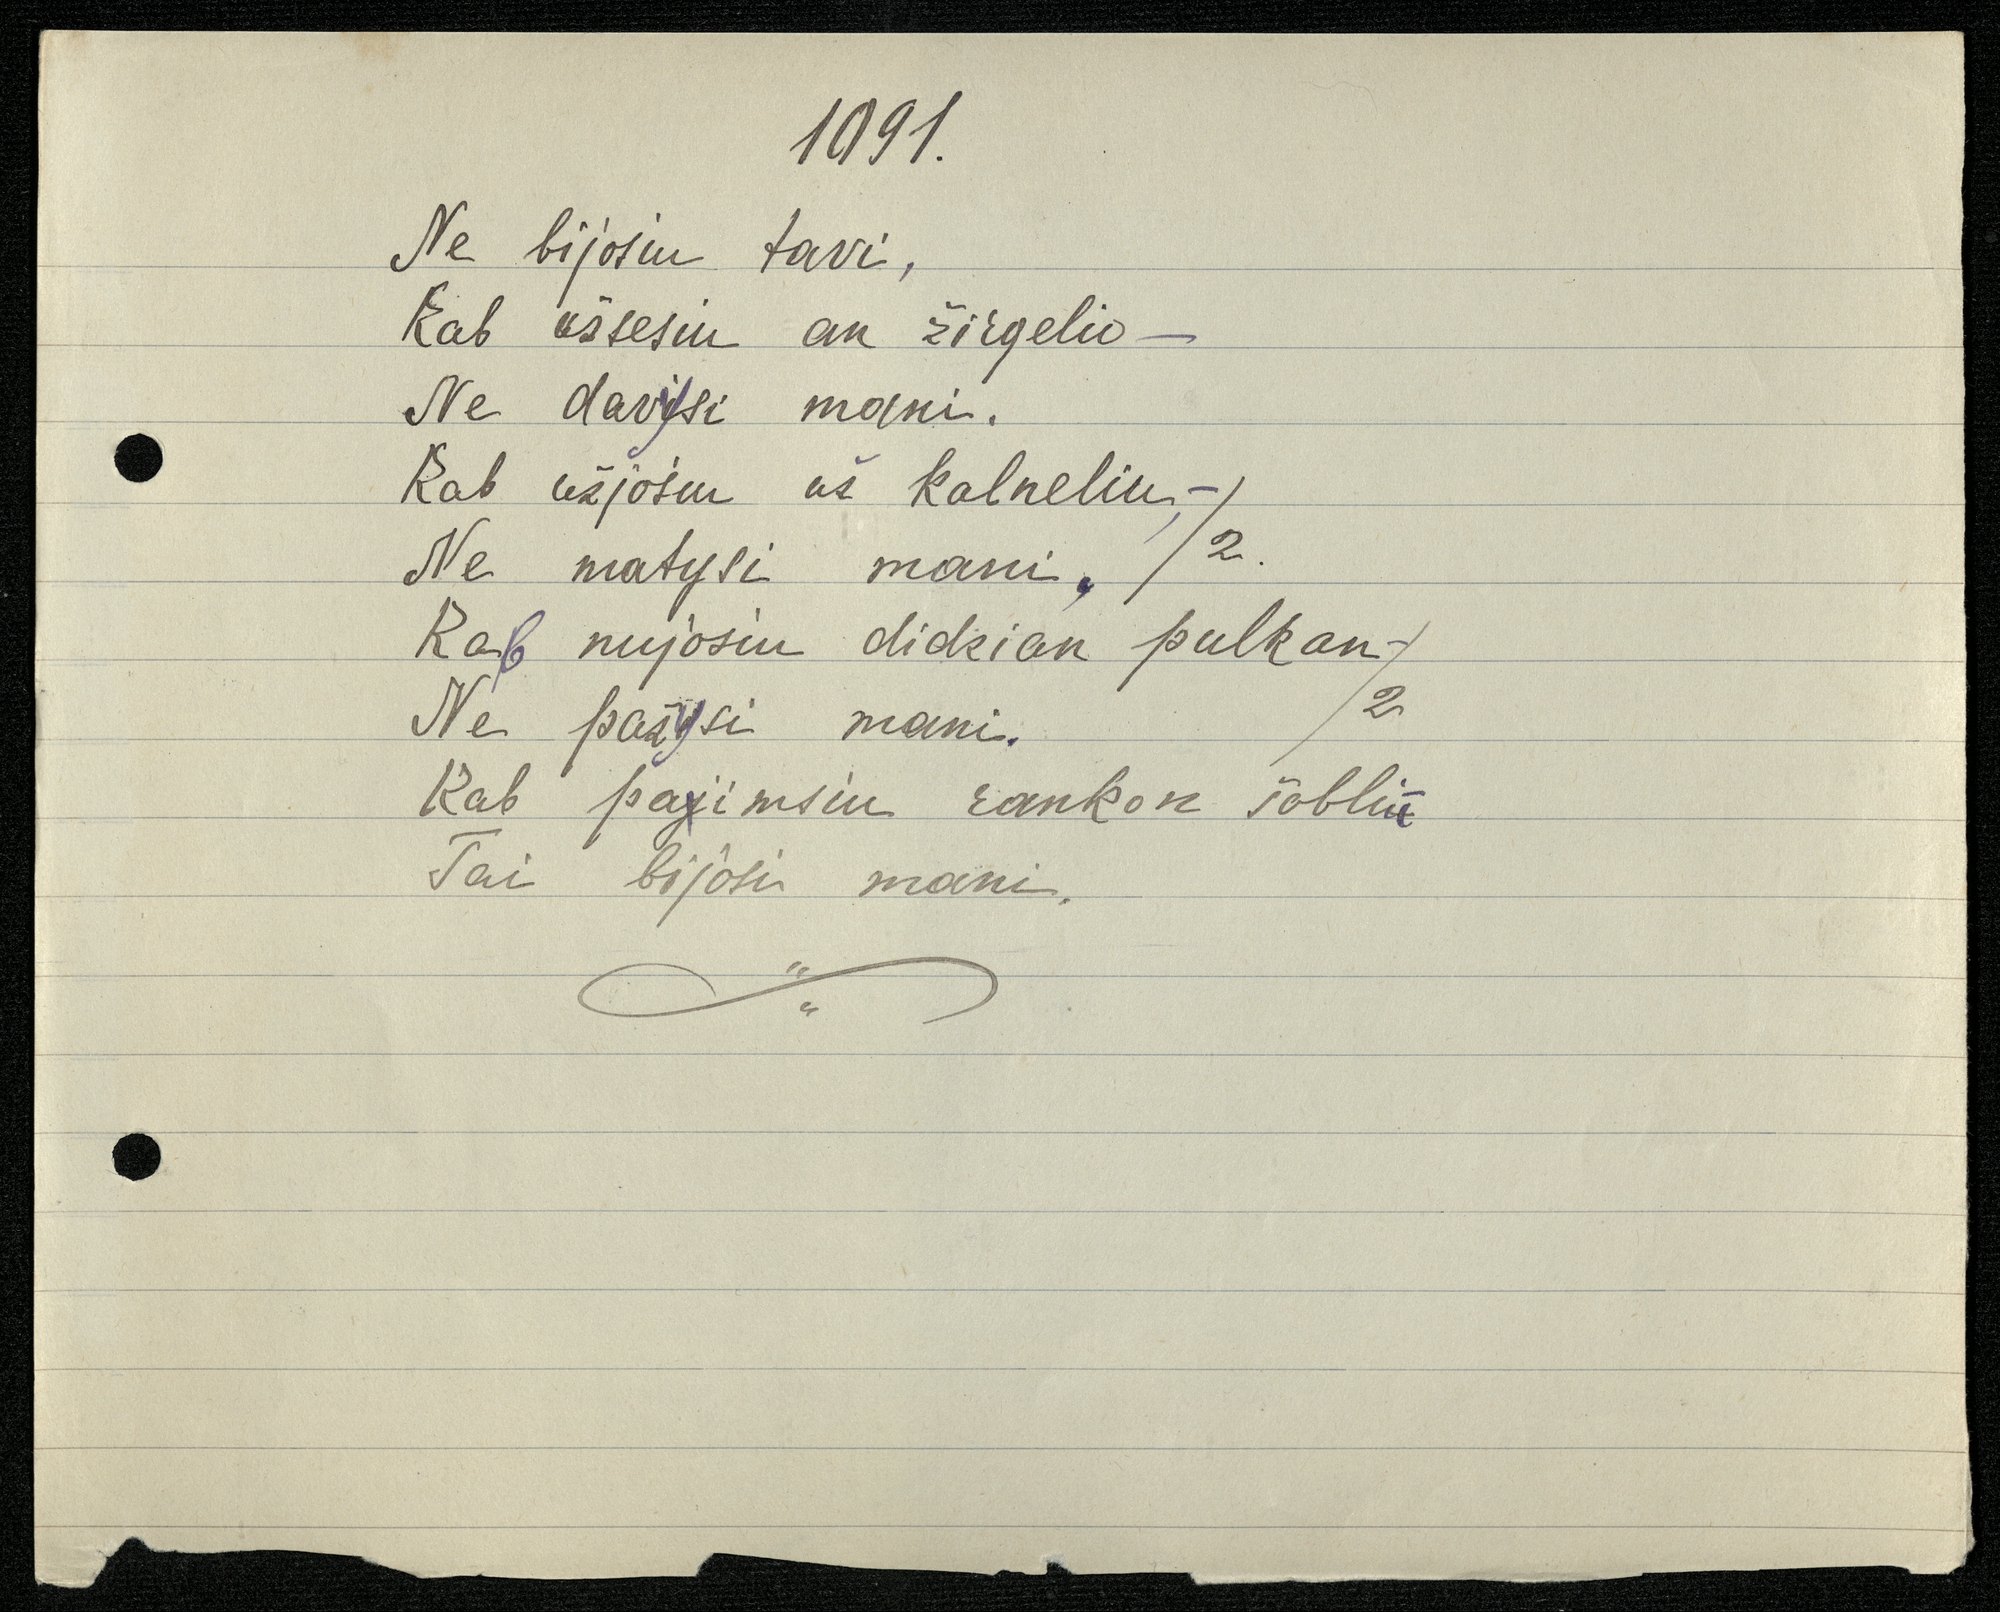 1091.
Ne bijosiu tavi,
Kab ušsesiu an žirgelio —
Ne davysi mani.
Kab užjosiu už kalneliu, —
Ne matysi mani, /2.
Kab nujosiu didzian pulkan —
Ne pažysi mani. /2
Kab pajimsiu rankon šobliū
Tai bijosi mani.